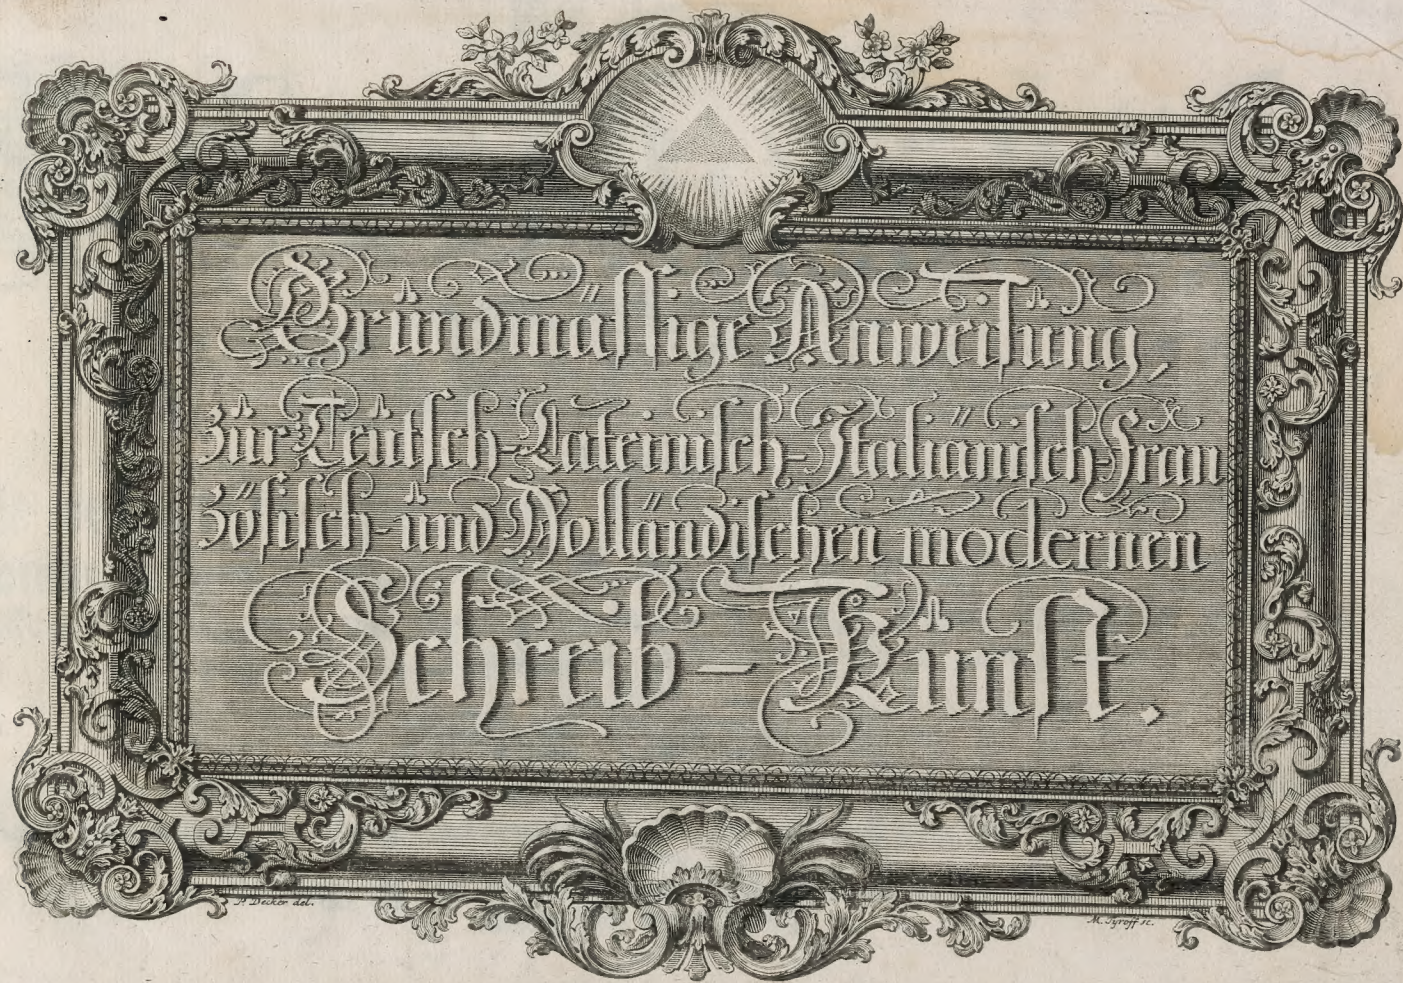 Gründmäſſige Anweiſüng,
zür Teütſch-Lateiniſch-Italiäniſch-Fran
zöſiſch-ünd Holländiſchen modernen
Schreib-Künſt.
P. Decker del.
M. Tyroff sc.